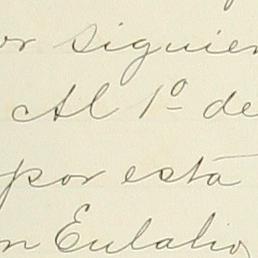 or siguien
Al 1º de
por está
n Eulalio